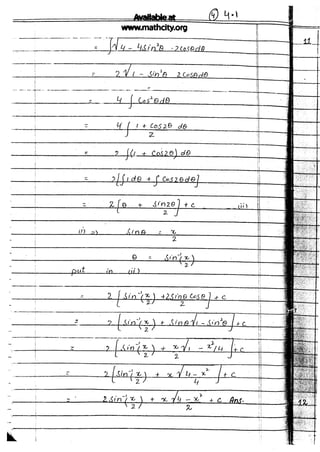 Available at
www.mathcity.org
④ 4.1
11
= ∫√4 - 4Sin²θ · 2Cosθdθ
= 2√1 - Sin²θ 2Cosθdθ
= 4 ∫ Cos²θdθ
= 4 ∫ 1 + Cos2θ / 2 dθ
= 2 ∫(1 + Cos2θ) dθ
= 2[∫1dθ + ∫Cos2θdθ]
= 2[θ + Sin2θ / 2] + c iii)
ii) => Sinθ = x / 2
θ = Sin⁻¹(x / 2)
put in iii)
= 2[Sin⁻¹(x / 2) + 2Sinθ Cosθ / 2] + c
= 2[Sin⁻¹(x / 2) + Sinθ√1 - Sin²θ] + c
= 2[Sin⁻¹(x / 2) + x / 2 √1 - x²/4] + c
= 2[Sin⁻¹(x / 2) + x √4 - x² / 4] + c
= 2Sin⁻¹(x / 2) + x √4 - x² / 2 + c Ans.
12